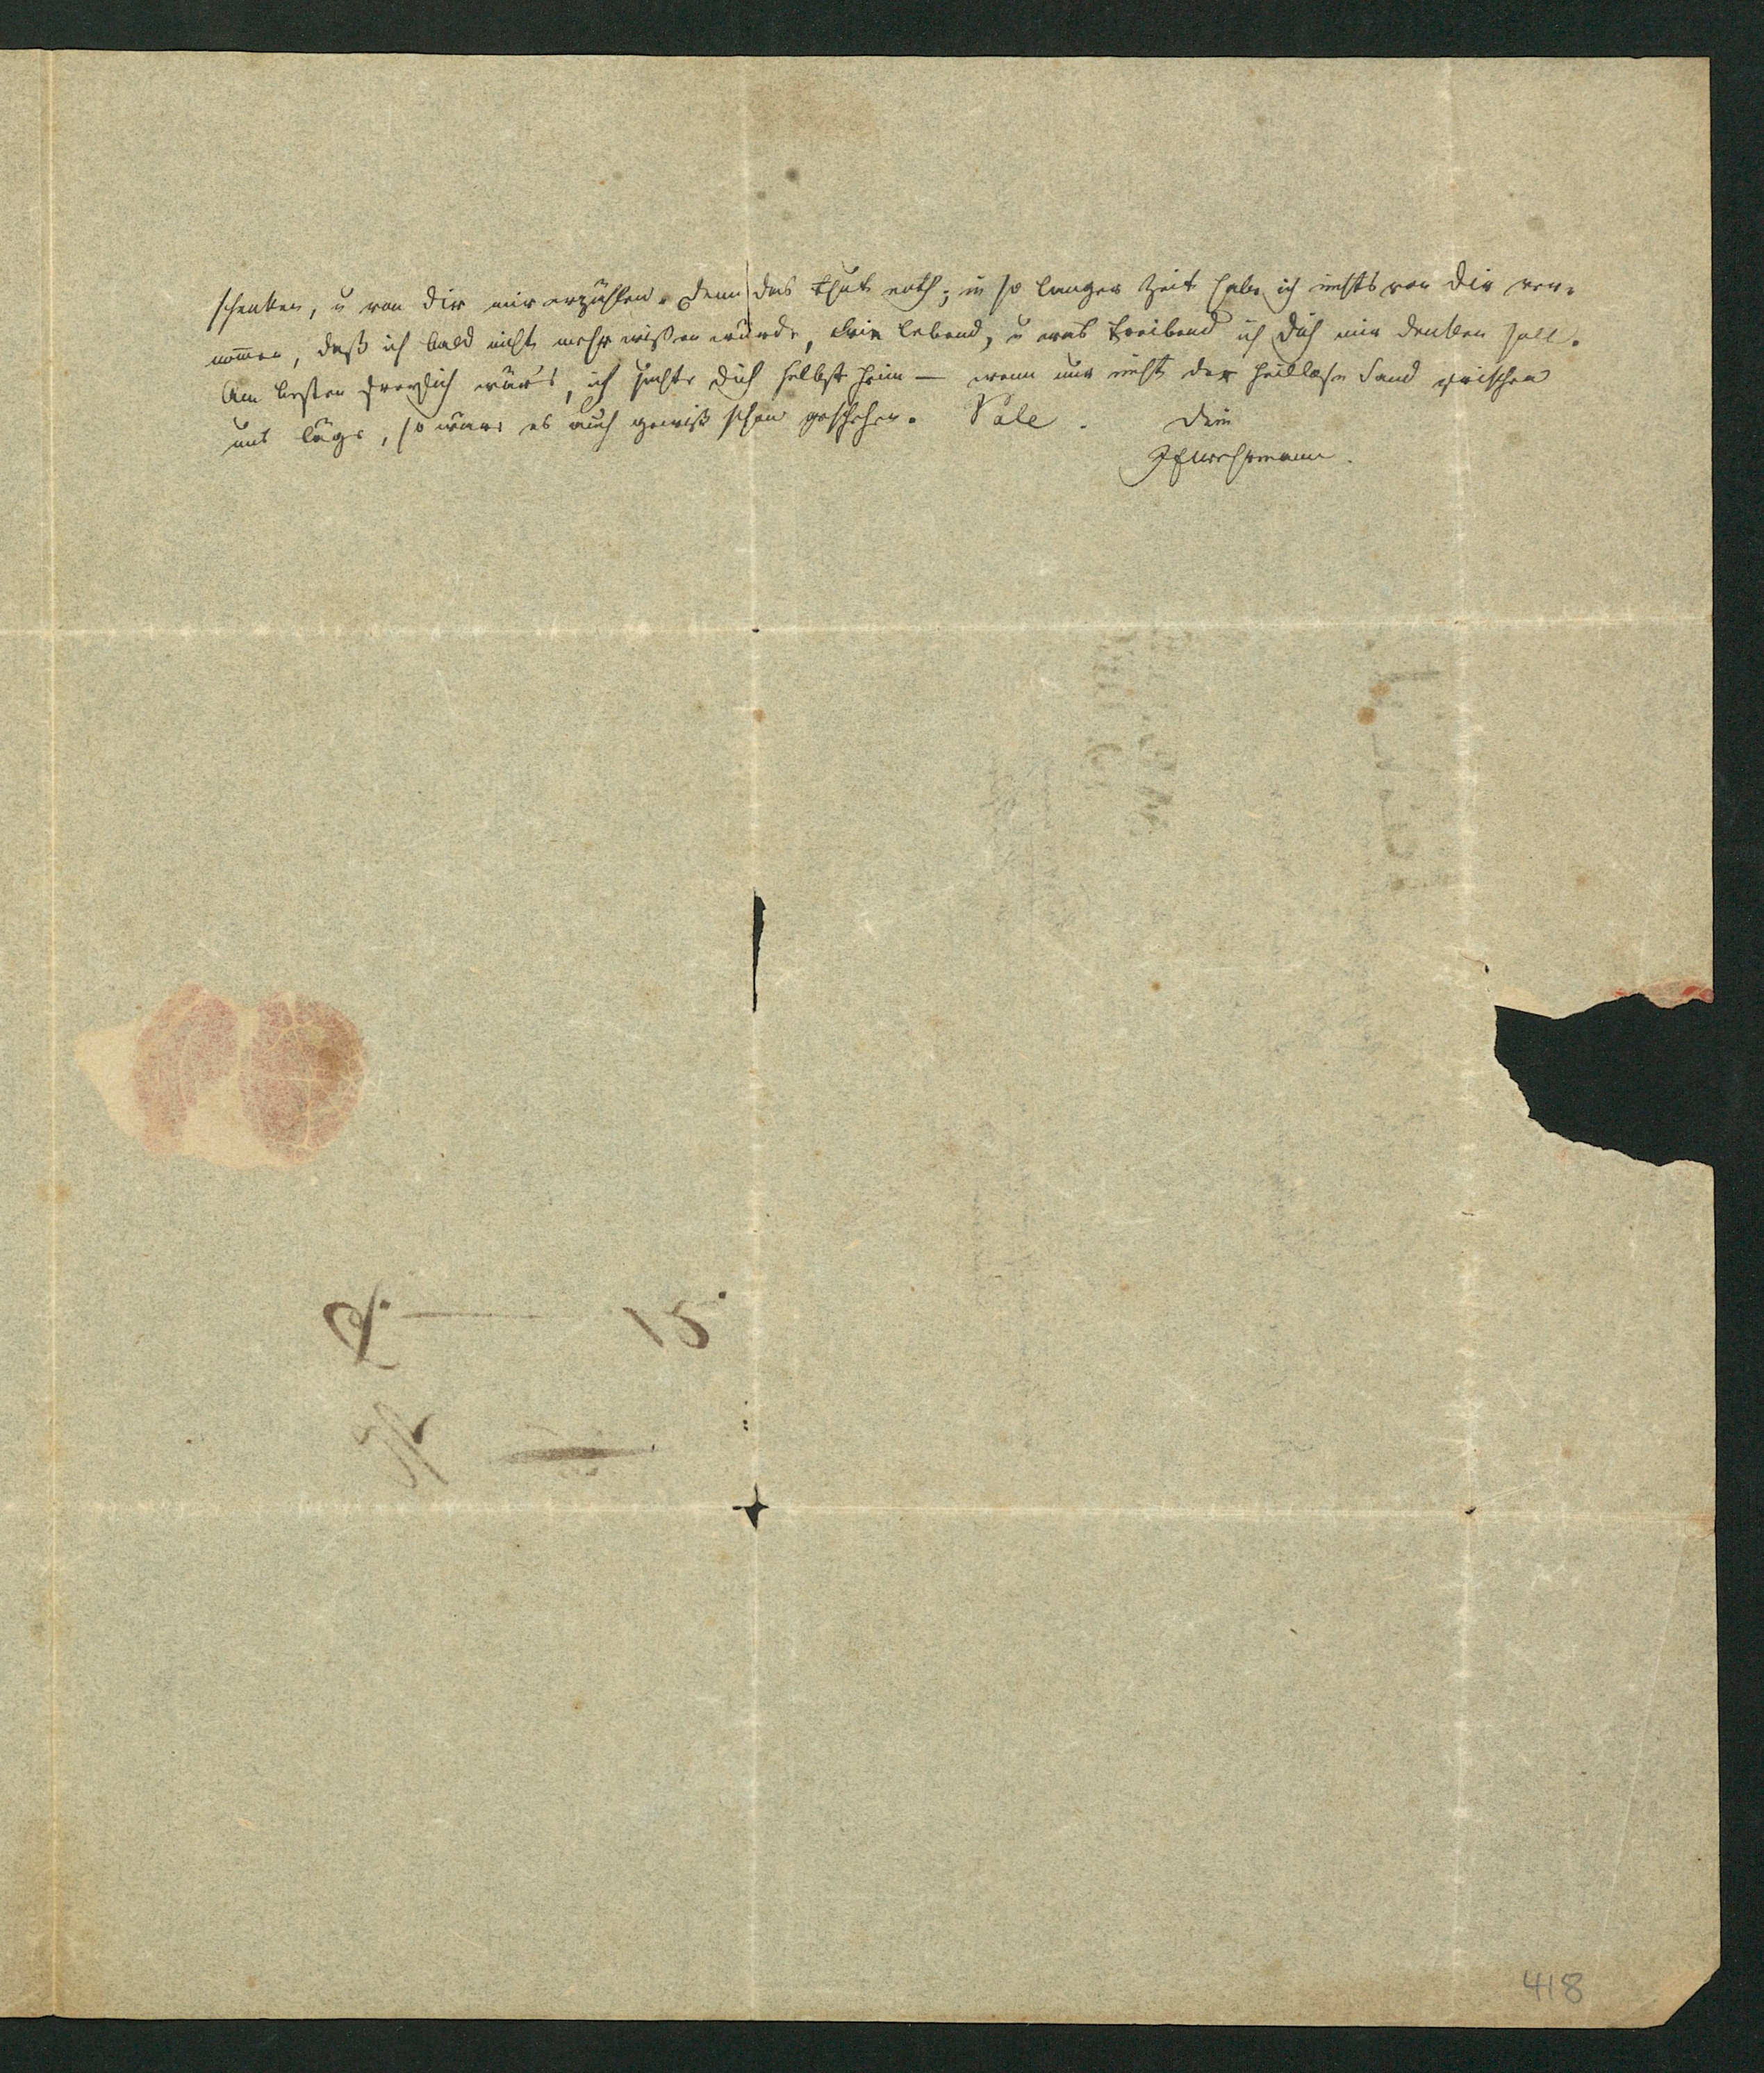 schenken, u von Dir mir erzählen. Denn das thut noth; in so langer Zeit habe ich nichts von Dir ver-
nommen, daß ich bald nicht mehr wissen würde, wie lebend, u was treibend ich Dich mir denken soll.
Am besten freylich wär's, ich suchte Dich selbst heim — wenn nur nicht der heillose Sand zwischen
uns läge, so wäre es auch gewiß schon geschehen. Vale. Dein
15
418